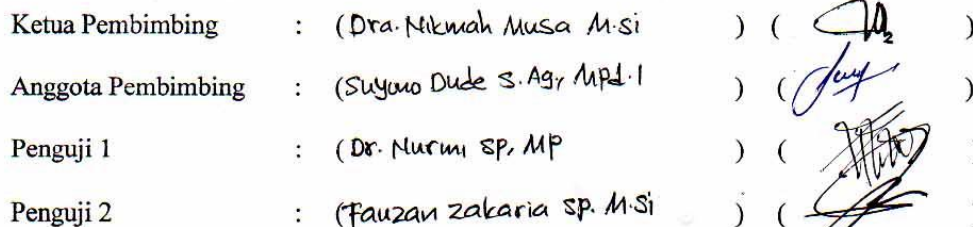 Ketua Pembimbing : (Dra. Nikmah Musa M.si ) ( )
Anggota Pembimbing : (Suyono Dude S.Ag, Mpd.I ) ( )
Penguji 1 : (Dr. Nurmi SP, MP ) (
Penguji 2 : (Fauzan zakaria sp. M.Si ) (